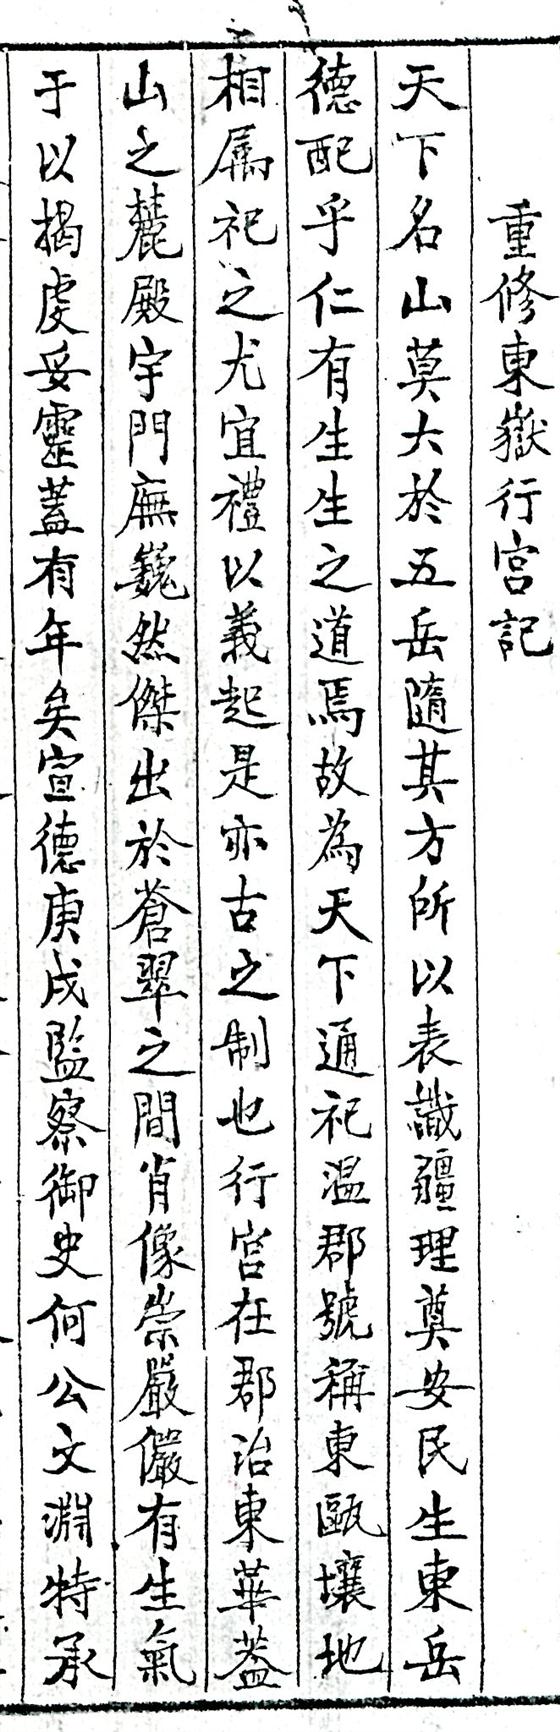 重修東嶽行宫記
天下名山莫大於五岳隨其方所以表識疆理奠安民生東岳
德配乎仁有生生之道焉故為天下通祀温郡號稱東甌壤地
相属祀之尤宜禮以義起是亦古之制也行宫在郡治東華蓋
山之麓殿宇門廡巍然傑出於蒼翠之間肖像崇嚴儼有生氣
于以揭虔妥靈蓋有年矣宣德庚戌監察御史何公文淵特承